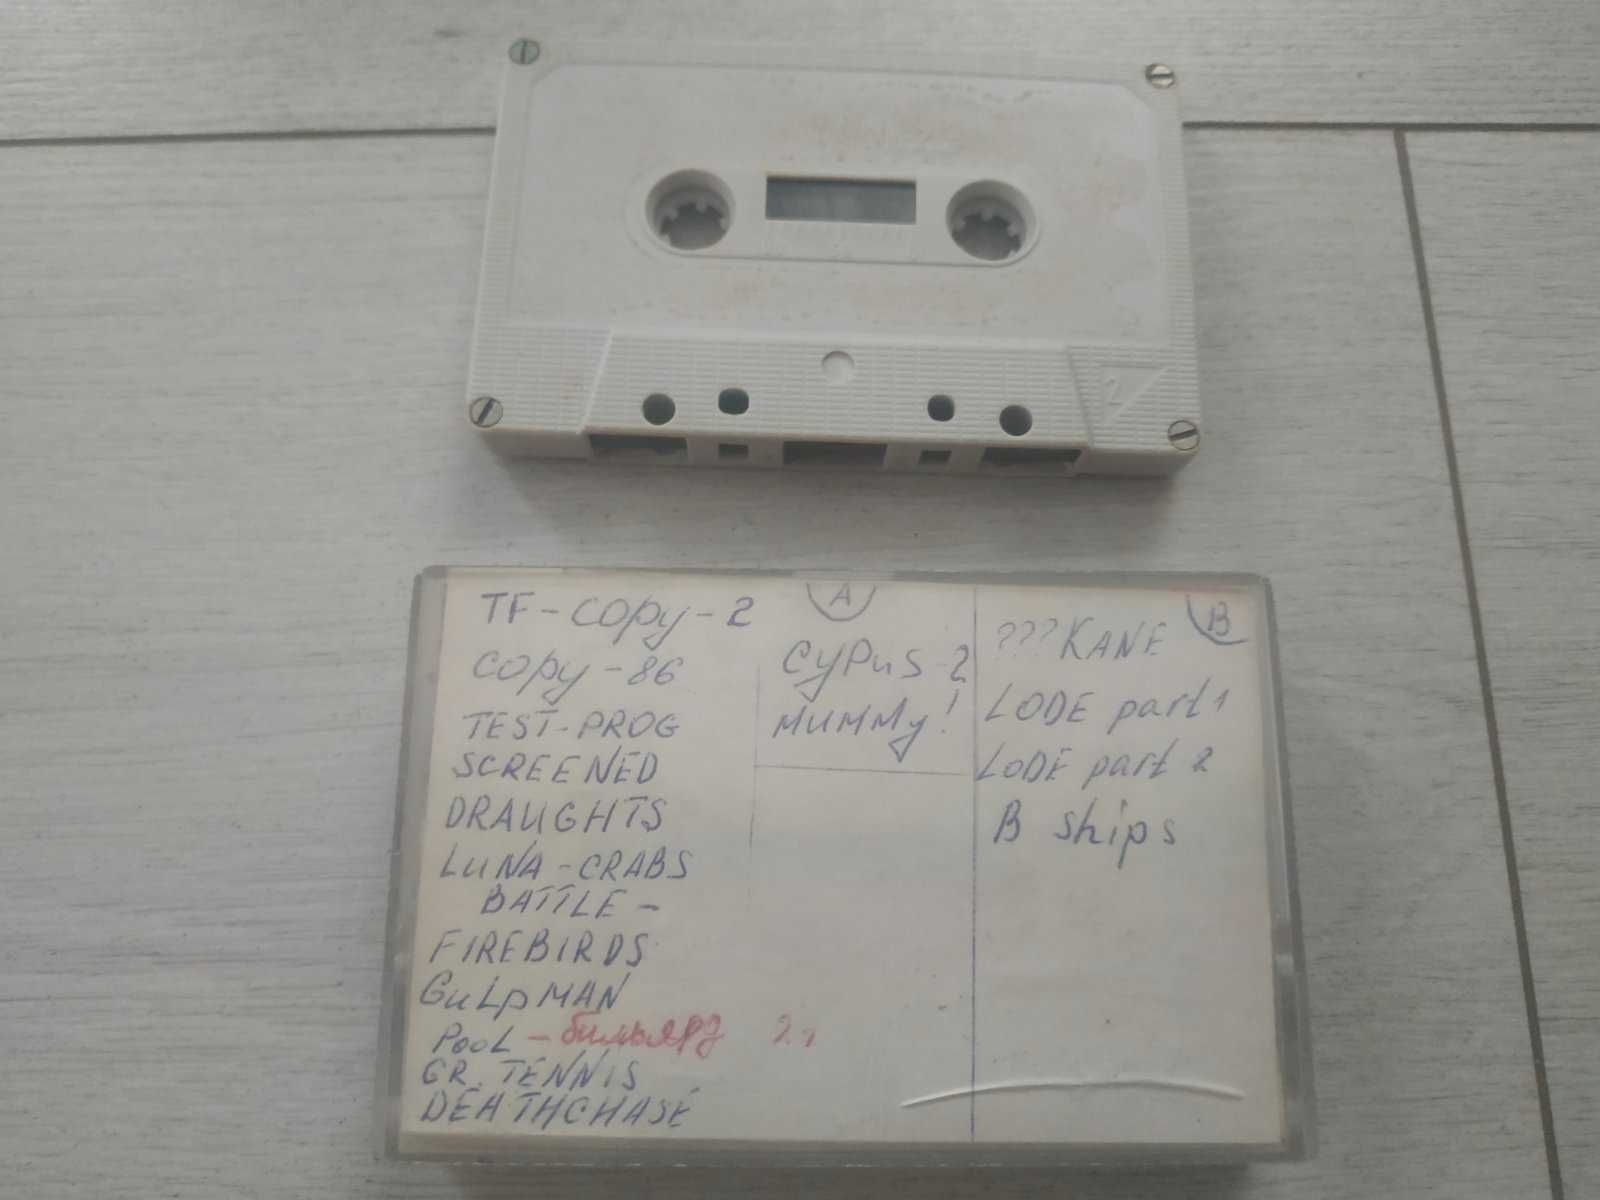 2
A
TF-copy-2
copy-86
TEST-PROG
SCREENED
DRAUGHTS
LUNA-CRABS
BATTLE -
FIREBIRDS
GuLpMAN
POOL - бильярд 2
GR. TENNIS
DEATHCHASE
CyPuS-2
MUMMy!
B
???KANE
LODE part 1
LODE part 2
B ships